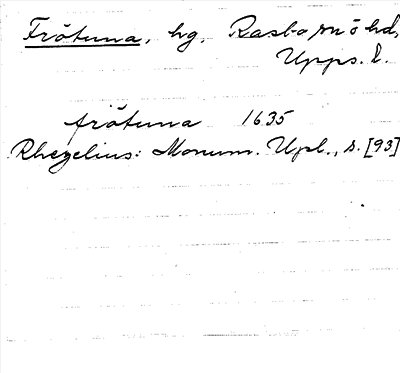 Frötuna, hg, Rasbo sn o hd,
Upps. l.
frötuna 1635
Rhezelius: Monum. Upl., s. [93]